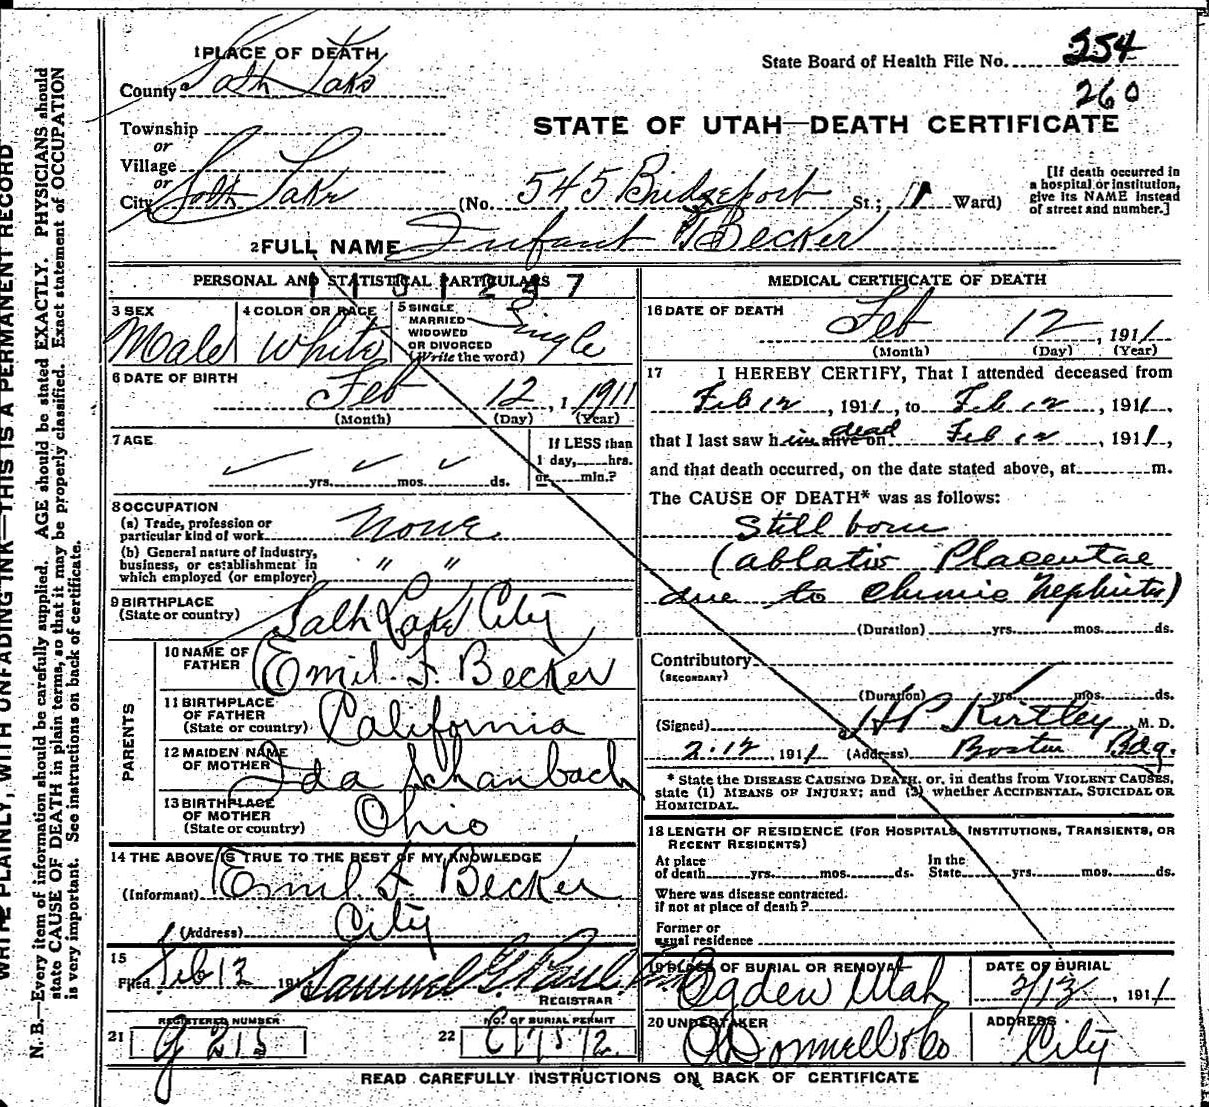 1 PLACE OF DEATH
County Salt Lake
State Board of Health File No. 254
260
STATE OF UTAH—DEATH CERTIFICATE
Township
or
Village
or
City Salt Lake (No. 545 Bridgeport St.; 11 Ward)
[If death occurred in
a hospital or institution,
give its NAME instead
of street and number.]
2 FULL NAME Infant Becker
PERSONAL AND STATISTICAL PARTICULARS
3 SEX Male
4 COLOR OR RACE White
5 SINGLE
MARRIED
WIDOWED
OR DIVORCED
(Write the word) Single
6 DATE OF BIRTH
Feb 12, 1 1911
(Month) (Day) (Year)
7 AGE
yrs. mos. ds.
If LESS than
1 day, hrs.
or min.?
8 OCCUPATION
(a) Trade, profession or
particular kind of work None
(b) General nature of industry,
business, or establishment in
which employed (or employer) " "
9 BIRTHPLACE
(State or country) Salt Lake City
PARENTS
10 NAME OF
FATHER Emil F. Becker
11 BIRTHPLACE
OF FATHER
(State or country) California
12 MAIDEN NAME
OF MOTHER Ida Schanbach
13 BIRTHPLACE
OF MOTHER
(State or country) Ohio
14 THE ABOVE IS TRUE TO THE BEST OF MY KNOWLEDGE
(Informant) Emil F Becker
(Address) City
15
Filed Feb 13 191 Samuel G. Paul
REGISTRAR
21 REGISTERED NUMBER
G 215
22 NO. OF BURIAL PERMIT
C1752
MEDICAL CERTIFICATE OF DEATH
16 DATE OF DEATH
Feb 12, 1911
(Month) (Day) (Year)
17 I HEREBY CERTIFY, That I attended deceased from
Feb 12, 1911, to Feb 12, 1911.
that I last saw him alive on dead Feb 12, 1911,
and that death occurred, on the date stated above, at m.
The CAUSE OF DEATH* was as follows:
Still born
(ablatio Placentae
due to Chronic Nephritis)
(Duration) yrs. mos. ds.
Contributory
(SECONDARY)
(Duration) yrs. mos. ds.
(Signed) H P Kirtley, M. D.
2.12, 1911 (Address) Boston Bdg.
* State the DISEASE CAUSING DEATH, or, in deaths from VIOLENT CAUSES,
state (1) MEANS OF INJURY; and (2) whether ACCIDENTAL, SUICIDAL OR
HOMICIDAL.
18 LENGTH OF RESIDENCE (FOR HOSPITALS, INSTITUTIONS, TRANSIENTS, OR
RECENT RESIDENTS)
At place
of death yrs. mos. ds.
In the
State yrs. mos. ds.
Where was disease contracted.
if not at place of death?
Former or
usual residence
19 PLACE OF BURIAL OR REMOVAL
Ogden Utah
DATE OF BURIAL
2/13, 1911
20 UNDERTAKER
O'Donnell & Co
ADDRESS
City
READ CAREFULLY INSTRUCTIONS ON BACK OF CERTIFICATE
WRITE PLAINLY, WITH UNFADING INK—THIS IS A PERMANENT RECORD
N. B.—Every item of information should be carefully supplied. AGE should be stated EXACTLY. PHYSICIANS should
state CAUSE OF DEATH in plain terms, so that it may be properly classified. Exact statement of OCCUPATION
is very important. See instructions on back of certificate.